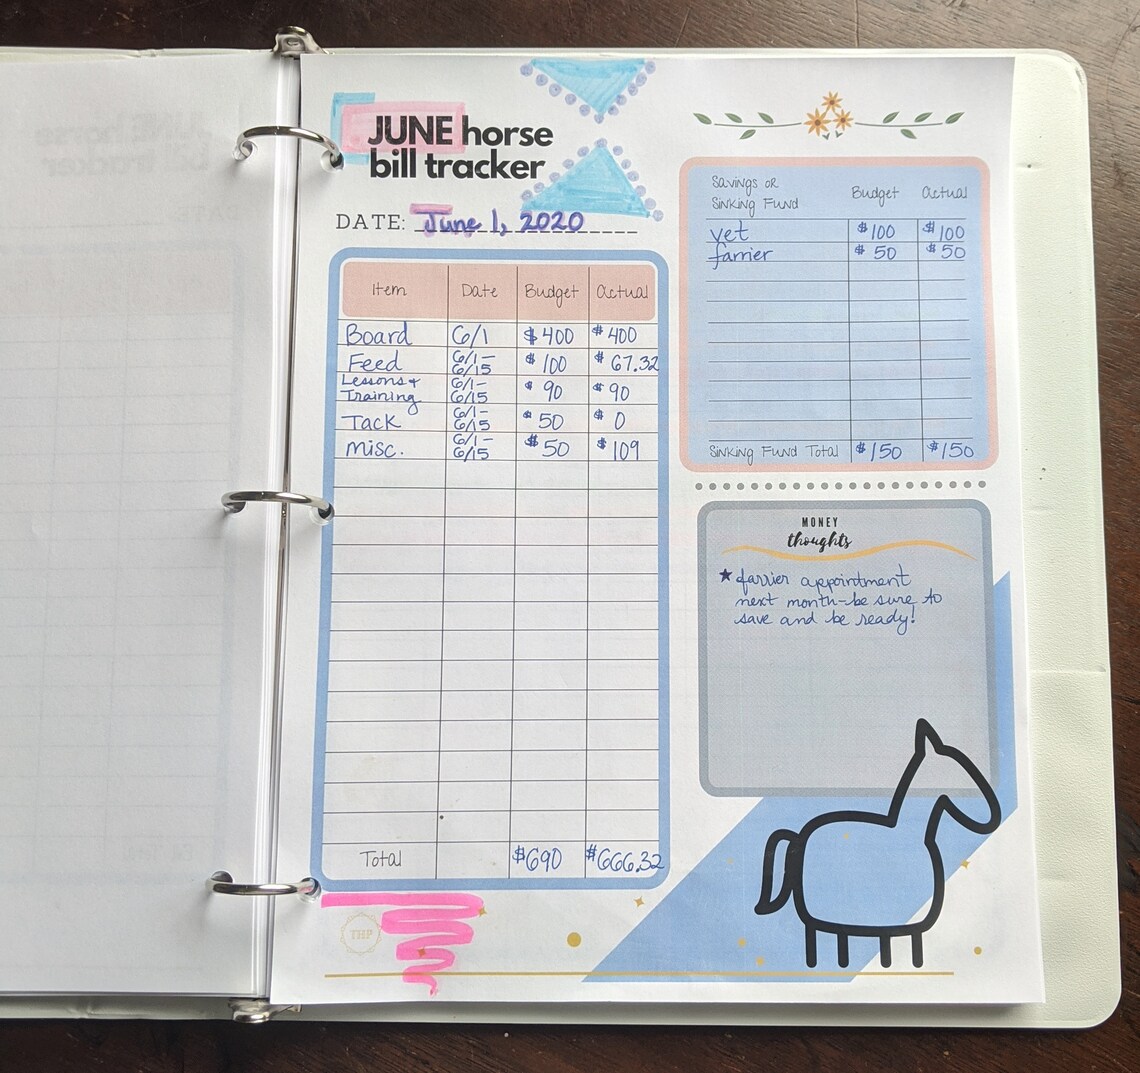 JUNE horse
bill tracker
DATE: June 1, 2020
Item Date Budget Actual
Board 6/1 $400 $400
Feed 6/1- 6/15 $100 $67.32
Lessons + Training 6/1- 6/15 $90 $90
Tack 6/1- 6/15 $50 $0
Misc. 6/1- 6/15 $50 $109
Total $690 $666.32
THP
Savings or
Sinking Fund Budget Actual
vet $100 $100
farrier $50 $50
Sinking Fund Total $150 $150
MONEY
thoughts
★ farrier appointment
next month-be sure to
save and be ready!